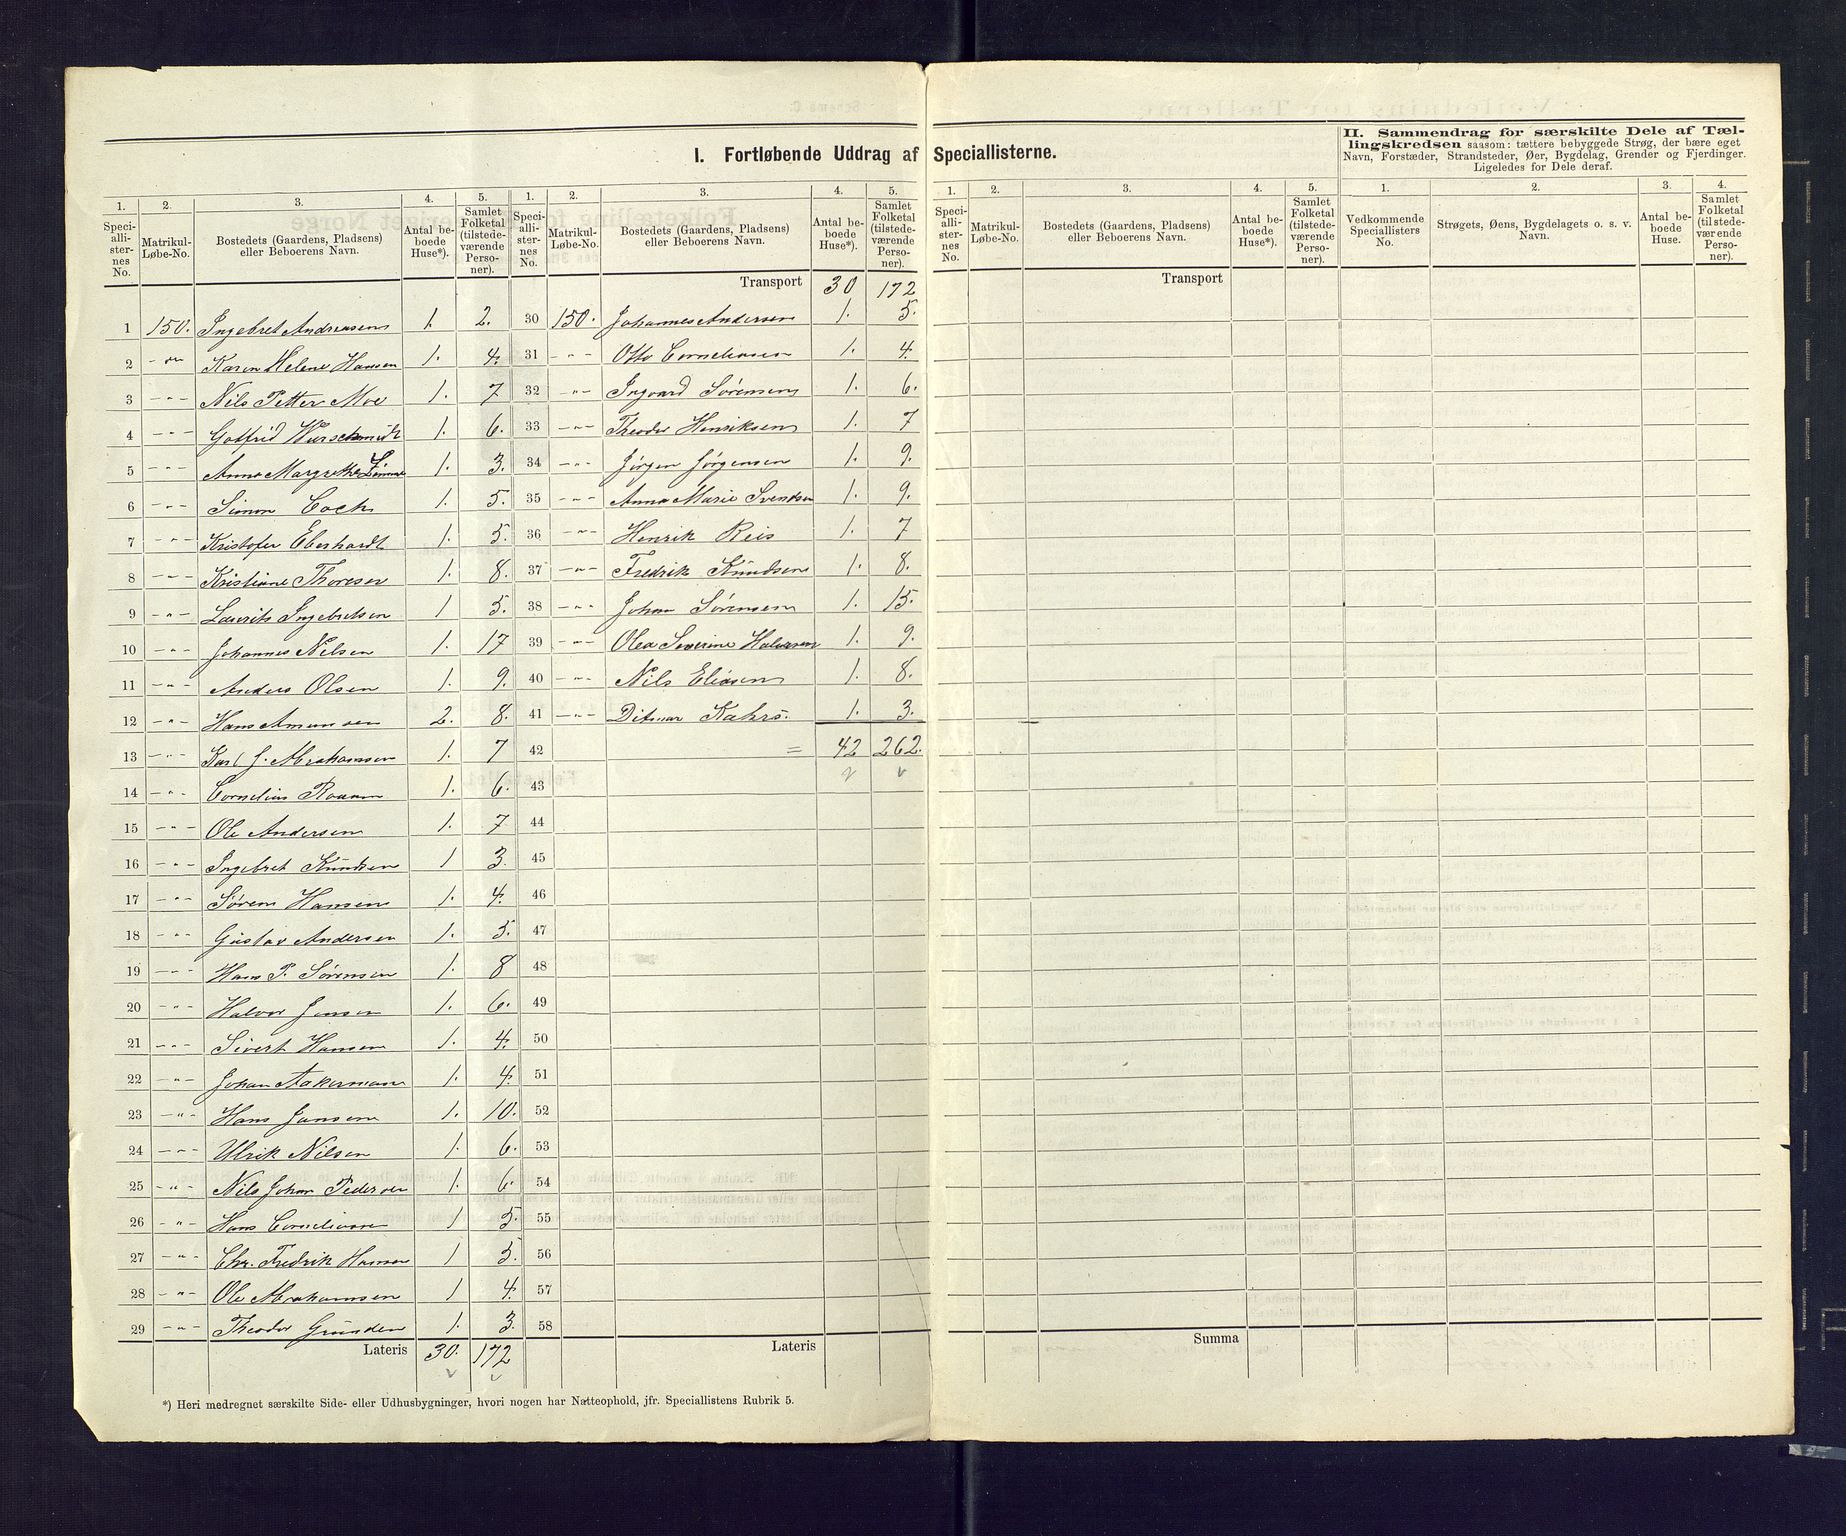 I. Fortløbende Uddrag af Speciallisterne.
II. Sammendrag for særskilte Dele af Tællingskredsen saasom: tættere bebyggede Strøg, der bære eget
Navn, Forstæder, Strandsteder, Øer, Bygdelag, Grender og Fjerdinger.
Ligeledes for Dele deraf.
1. 2. 3. 4. 5. 1. 2. 3. 4. 5. 1. 2. 3. 4. 5. 1. 2. 3. 4.
Speciallisternes No. Matrikul-Løbe-No. Bostedets (Gaardens, Pladsens) eller Beboerens Navn. Antal beboede Huse*). Samlet Folketal (tilstedeværende Personer).
Speciallisternes No. Matrikul-Løbe-No. Bostedets (Gaardens, Pladsens) eller Beboerens Navn. Antal beboede Huse*). Samlet Folketal (tilstedeværende Personer).
Speciallisternes No. Matrikul-Løbe-No. Bostedets (Gaardens, Pladsens) eller Beboerens Navn. Antal beboede Huse*). Samlet Folketal (tilstedeværende Personer).
Vedkommende Speciallisters No. Strøgets, Øens, Bygdelagets o. s. v. Navn. Antal beboede Huse. Samlet Folketal (tilstedeværende Personer).
1 150. Ingebret Andreasen 1. 2.
2 -"- Karen Helene Hansen 1. 4.
3 -"- Nils Petter Moe 1. 7
4 -"- Gotfrid Wurschmidt 1. 6.
5 -"- Anna Margrethe 1. 3.
6 -"- Simon Coch 1. 5.
7 -"- Kristofer Eberhardt 1. 5.
8 -"- Kristiane Thoresen 1. 8.
9 -"- Laurits Ingebretsen 1 5.
10 -"- Johannes Nilsen 1. 17
11 -"- Anders Olsen 1. 9.
12 -"- Hans Amundsen 2. 8.
13 -"- Karl J. Abrahamsen 1. 7
14 -"- Cornelius 1. 6.
15 -"- Ole Andersen 1. 7
16 -"- Ingebret Knudsen 1 3.
17 -"- Søren Hansen 1. 4.
18 -"- Gustav Andersen 1. 5.
19 -"- Hans P. Sørensen 1. 8
20 -"- Halvor Jensen 1. 6.
21 -"- Sivert Hansen 1. 4.
22 -"- Johan Aakermann 1. 4.
23 -"- Hans Jansen 1. 10.
24 -"- Ulrik Nilsen 1. 6.
25 -"- Nils Johan Pedersen 1. 6.
26 -"- Hans Corneliussen 1 5.
27 -"- Chr. Fredrik Hansen 1 5.
28 -"- Ole Abrahamsen 1 4.
29 -"- Theodor Grunden 1. 3.
Lateris 30. 172
Transport 30 172
30 150. Johannes Andersen 1. 5.
31 -"- Otto Corneliusen 1. 4.
32 -"- Ingvard Sørensen 1. 6.
33 -"- Theodor Henriksen 1. 7
34 -"- Jørgen Jørgensen 1. 9.
35 -"- Anna Marie Svendsen 1. 9.
36 -"- Henrik Reis 1. 7
37 -"- Fredrik Knudsen 1. 8.
38 -"- Johan Sørensen 1. 15.
39 -"- Olea Severine Halvorsen 1. 9.
40 -"- Nils Eliasen 1. 8.
41 -"- Ditmar Kahrs. 1. 3.
42 = 42 262.
43
44
45
46
47
48
49
50
51
52
53
54
55
56
57
58
Lateris
Transport
Summa
*) Heri medregnet særskilte Side- eller Udhusbygninger, hvori nogen har Natteophold, jfr. Speciallistens Rubrik 5.